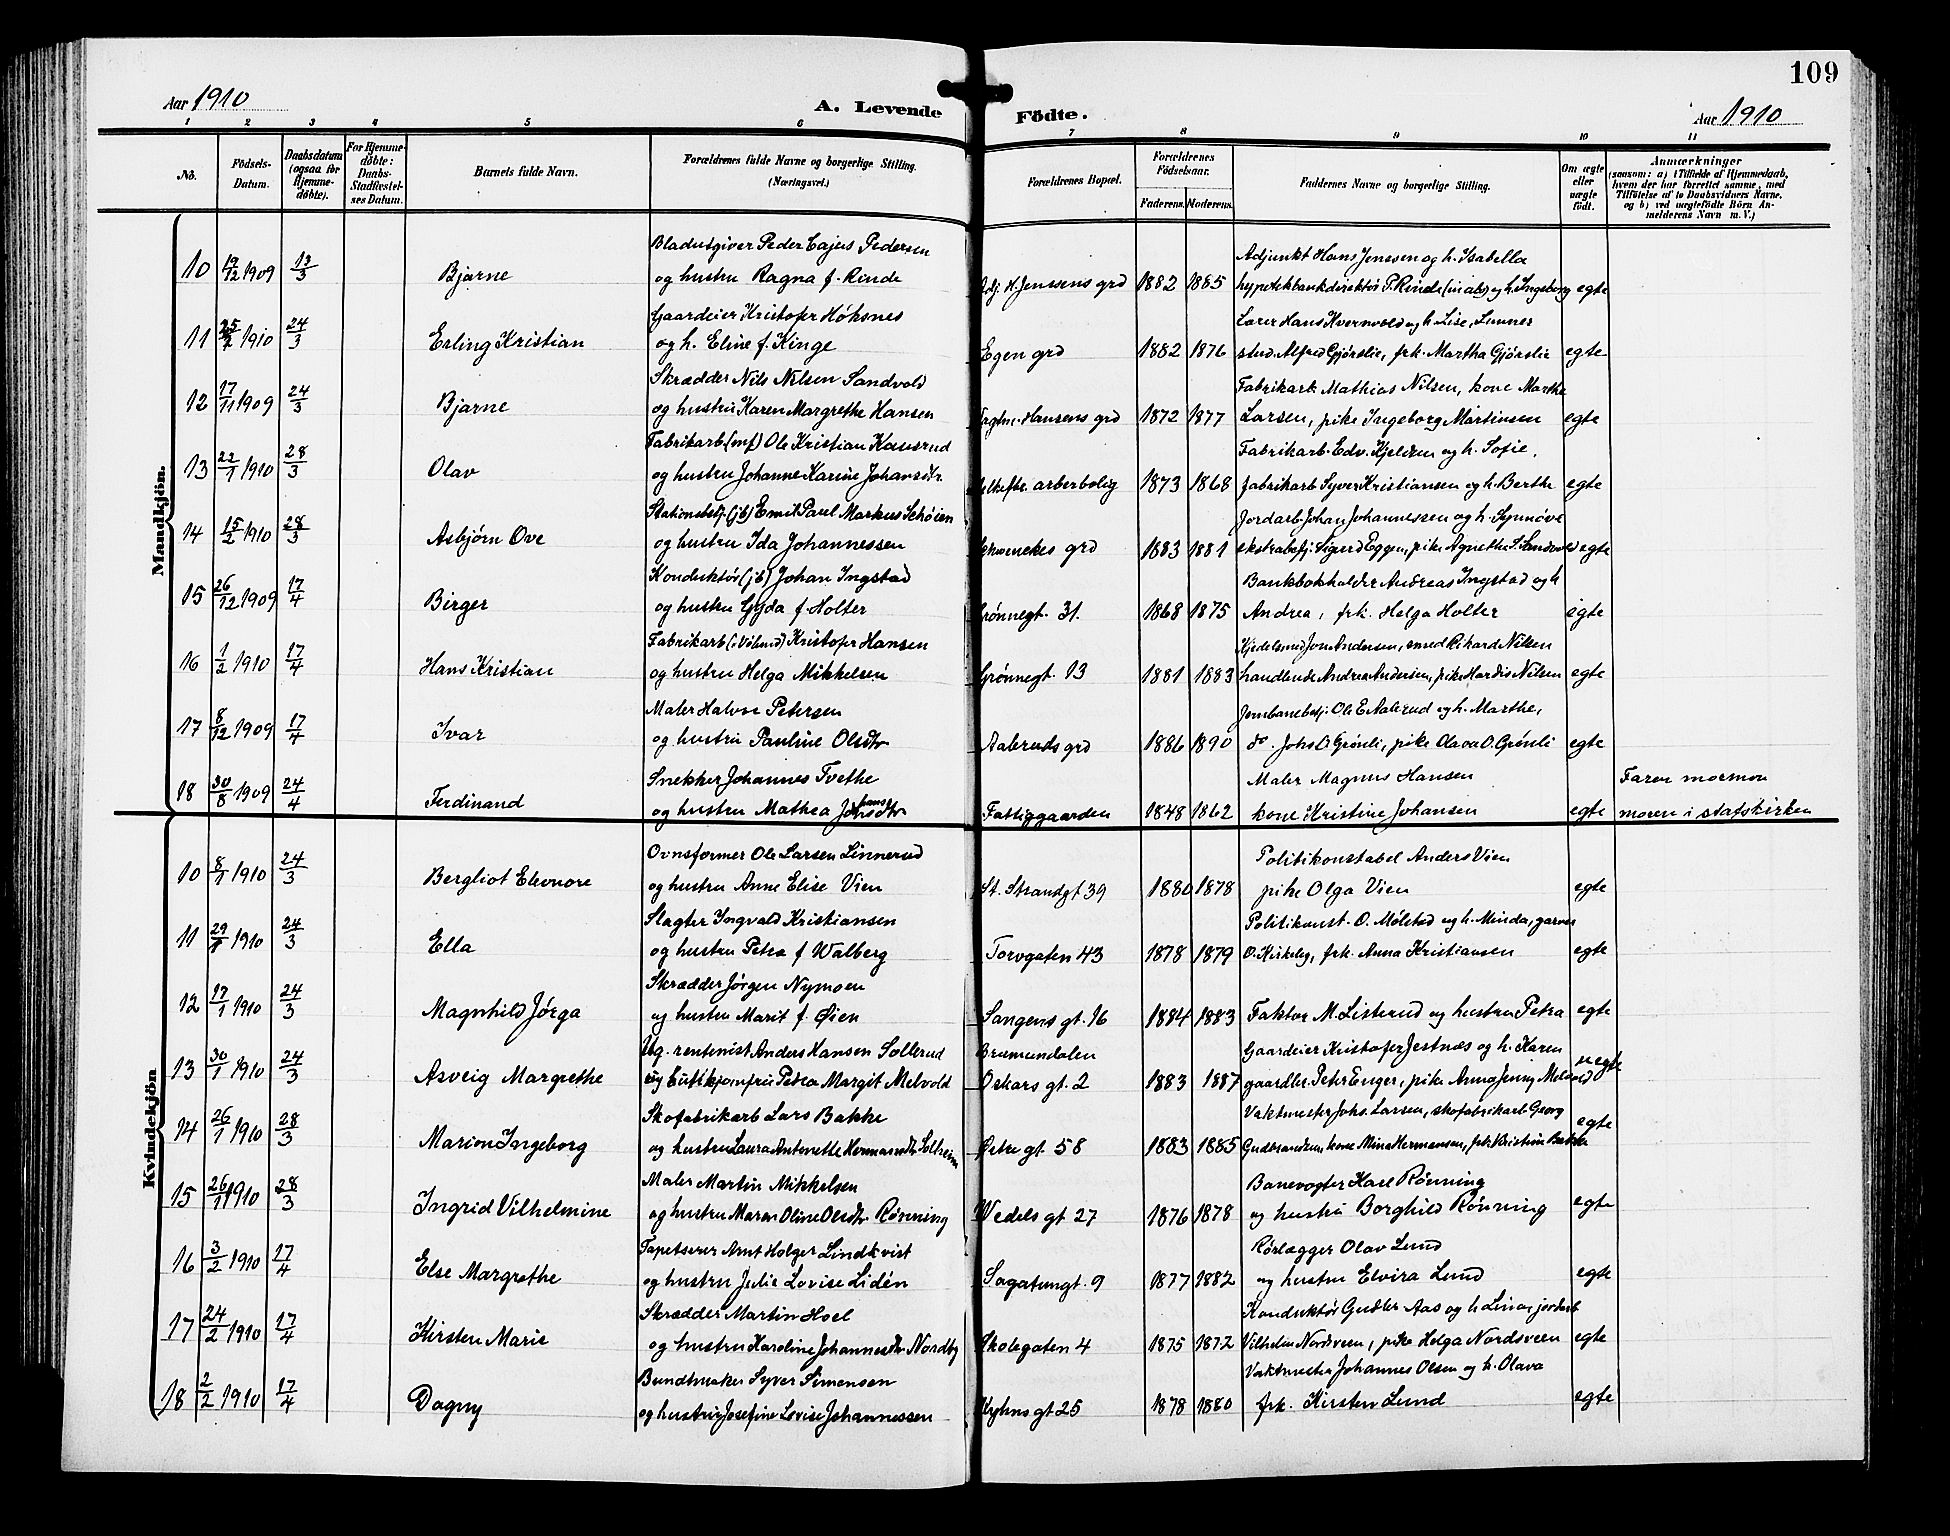 109
Aar 1910
A. Levende Födte.
Aar 1910
1 2 3 4 5 6 7 8 9 10 11
No.
Födsels-Datum.
Daabsdatum (ogsaa for Hjemme-döbte).
For Hjemme-döbte: Daabs-Stadfæstel-ses Datum.
Barnets fulde Navn.
Forældrenes fulde Navne og borgerlige Stilling. (Næringsvei.)
Forældrenes Bopæl.
Forældrenes Födselsaar.
Faderens. Moderens.
Faddernes Navne og borgerlige Stilling.
Om ægte eller uægte födt.
Anmærkninger
(saasom: a) i Tilfælde af Hjemmedaab, hvem der har forrettet samme, med Tilföielse af to Daabsvidners Navne, og b) ved uægtefödte Börn An-melderens Navn m. V.)
Mandkjön.
Bladudgiver Peder Cajus Pedersen Adjunkt Hans Jenssen og h. Isabella
10 19/12 1909 13/3 Bjarne og hustru Ragna f. Rinde Adj. H. Jenssens grd 1882 1885 hypotekbankdirektør P. Rinde og h. Ingeborg egte
Gaardeier Kristofer Høksnes Lærer Hans Kvernvold og h. Lise, Lunner
11 1910 24/3 Erling Kristian og h. Eline f. Kinge Egen grd 1882 1876 stud. Alfred Gjørslie, frk. Martha Gjørslie egte
Skrædder Nils Nilsen Sandvold Fabrikarb Mathias Nilsen, kone Marthe
12 17/11 1909 24/3 Bjarne og hustru Karen Margrethe Hansen Hansens grd 1872 1877 Larsen, pike Ingeborg Martinsen egte
Fabrikarb (mf) Ole Kristian Fabrikarb. Edv. Kjeldsen og h. Sofie,
13 22/1 1910 28/3 Olav og hustru Johanne Karine Johansdtr. arberbolig 1873 1868 fabrikarb Syver Kristiansen og h. Berthe egte
Stationsbetj. (jb) Emil Paul Markus Schøien Jordarb Johan Johannessen og h. Synnøve
14 15/2 1910 28/3 Asbjørn Ove og hustru Ida Johannessen grd 1883 1881 ekstrabetj. Sigurd Eggen, pike Agnethe S. Sandvold egte
Konduktør (jb) Johan Ingstad Bankbokholder Andreas Ingstad og h
15 26/12 1909 17/4 Birger og hustru Gyda f. Holter Grønnegt. 31. 1868 1875 Andrea, frk. Helga Holter egte
Fabrikarb Kristofer Hansen Kjedelsmed Jon Andersen, smed Rikard Nilsen
16 1/2 1910 17/4 Hans Kristian og hustru Helga Mikkelsen Grønnegt. 13 1881 1883 handlende Andrea Andersen, pike Hardis Nilsen egte
Maler Halvor Petersen Jernbanebetj. Ole E Aalerud og h. Marthe,
17 8/12 1909 17/4 Ivar og hustru Pauline Olsdtr Aaleruds grd 1886 1890 do. Johs O Grønli, pike Olava O. Grønli egte
Snekker Johannes Tvethe Maler Magnus Hansen Faren mormon
18 30/8 1909 24/4 Ferdinand og hustru Mathea Fattiggaarden 1848 1862 kone Kristine Johansen egte moren i statskirken
Kvindekjön
Ovnsformer Ole Larsen Linnerud Politikonstabel Anders Vien
10 8/1 1910 24/3 Bergliot Eleonore og hustru Anne Elise Vien St. Strandgt 39 1880 1878 pike Olga Vien egte
Slagter Ingvald Kristiansen Politikonst. O. Mølstad og h. Minda, garver
11 29/1 1910 24/3 Ella og hustru Petra f Walberg Torvgaten 43 1878 1879 O. Kirkeby, frk. Anna Kristiansen egte
Skrædder Jørgen Nymoen
12 17/1 1910 24/3 Magnhild Jørga og hustru Marit f. Øien Sangens gt. 16 1884 1883 Faktor M. Listerud og hustru Petra egte
Ug. rentenist Anders Hansen Sollerud Brumundalen Gaardeier Kristofer Jestnæs og h. Karen
13 30/1 1910 24/3 Asveig Margrethe og butikjomfru Petra Margit Melvold Oskars gt. 2 1883 1887 gaardbr. Peter Enger, pike Anna Jenny Melvold uegte
Skofabrikarb Lars Bakke Vaktmester Johs. Larsen, skofabrikarb Georg
14 26/1 1910 28/3 Marion Ingeborg og hustru Laura Antonette Hermansdtr Solheim Østre gt. 58 1883 1885 Gudbrandsen, kone Mina Hermansen, frk. Kristine Bakke egte
Maler Martin Mikkelsen Banevogter Karl Rønning
15 26/1 1910 28/3 Ingrid Vilhelmine og hustru Maren Oline Olsdtr. Rønning Wedels gt 27 1876 1878 og hustru Borghild Rønning egte
Tapetserer Arnt Holger Lindkvist Rørlægger Olav Lund
16 3/2 1910 17/4 Else Margrethe og hustru Julie Lovise Lidén Sagatungt. 9 1877 1882 og hustru Elvira Lund egte
Skrædder Martin Hoel Konduktør Gudler Aas og h. Lina, jordarb
17 24/2 1910 17/4 Kirsten Marie og hustru Karoline Johannesdtr Nordby Skolegaten 4 1875 1872 Vilhelm Nordsveen, pike Helga Nordsveen egte
Bundtmaker Syver Simensen Vaktmester Johannes Olsen og h. Olava
18 2/2 1910 17/4 Dagny og hustru Josefine Lovise Johannessen Kyhns gt 25 1878 1880 frk. Kirsten Lund egte